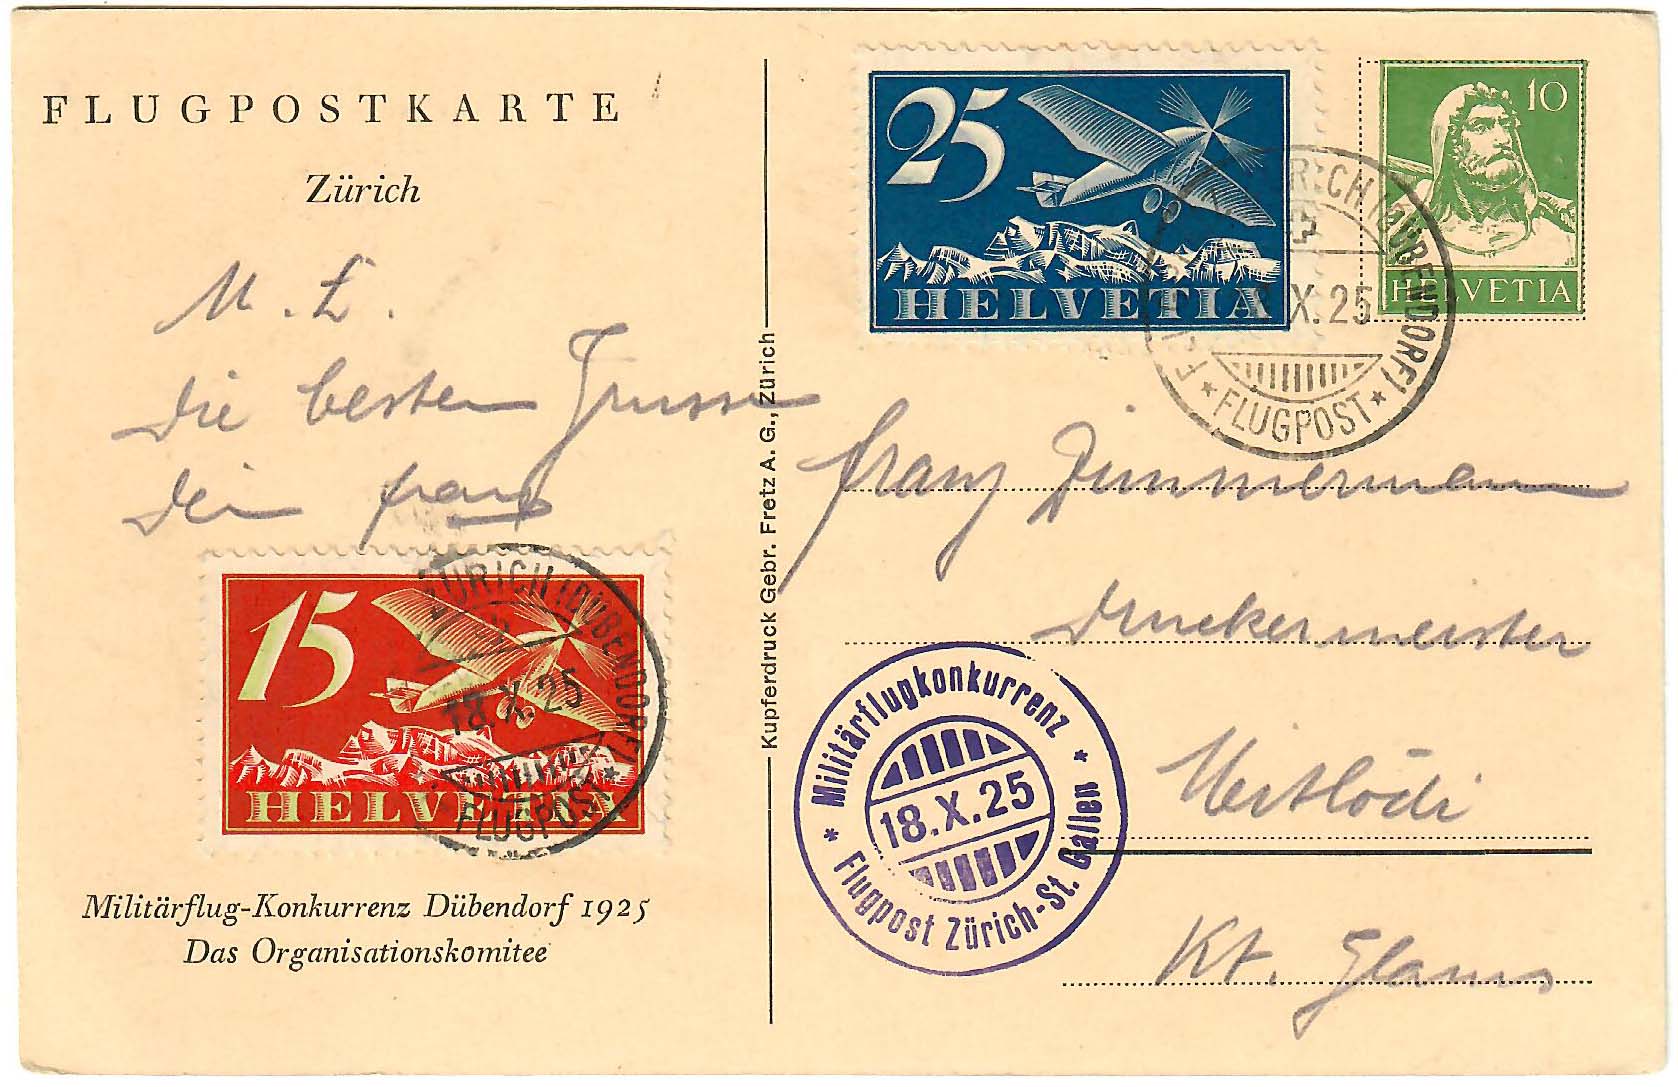 FLUGPOSTKARTE
Zürich
M. L.
die besten Grüsse
dein Franz
15
HELVETIA
ZÜRICH (DÜBENDORF)
18.X.25
* FLUGPOST *
Militärflug-Konkurrenz Dübendorf 1925
Das Organisationskomitee
Kupferdruck Gebr. Fretz A. G., Zürich
25
HELVETIA
10
HELVETIA
ZÜRICH (DÜBENDORF)
X.25
* FLUGPOST *
Franz Zimmermann
Druckermeister
Mitlödi
Kt. Glarus
* Militärflugkonkurrenz *
18.X.25
Flugpost Zürich-St. Gallen